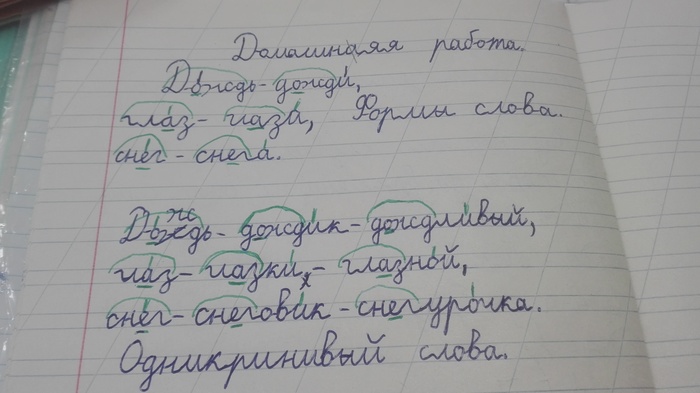 Домашняя работа.
До́ждь - дожди́,
гла́з - глаза́, Формы слова.
сне́г - снега́.
До́ждь - до́ждик - дождли́вый,
гла́з - глазки́ - глазно́й,
сне́г - снегови́к - снегуро́чка.
Одникринивый слова.